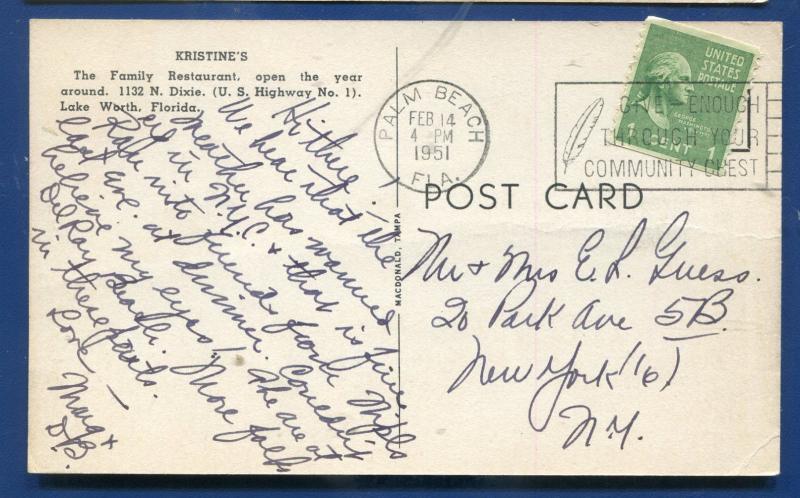 KRISTINE'S
The Family Restaurant, open the year
around. 1132 N. Dixie. (U. S. Highway No. 1).
Lake Worth, Florida.
Hi there!
We hear that the
weather has warmed
up in N.Y.C. & that is fine.
Ran into friends from Mpls
last eve. at dinner. Couldn't
believe my eyes! The are at
DelRay Beach. More folks
in these parts.
Love —
Marg &
D.B.
MACDONALD, TAMPA
PALM BEACH
FEB 14
4 PM
1951
FLA.
GIVE ENOUGH
THROUGH YOUR
COMMUNITY CHEST
UNITED
STATES
POSTAGE
GEORGE
WASHINGTON
1 CENT 1
POST CARD
Mr & Mrs E. L. Guess.
20 Park Ave 5B.
New York (16)
N.Y.